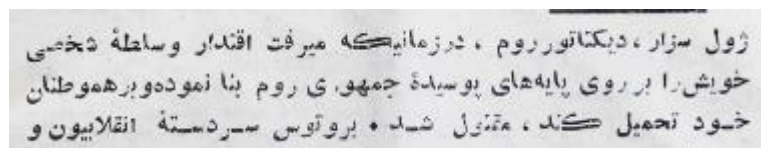 ژول سزار، دیکتاتور روم، درزمانیکه میرفت اقتدار وسلطهٔ شخصی
خویش را بر روی پایه‌های پوسیدهٔ جمهوری روم بنا نموده‌وبرهموطنان
خود تحمیل کند، مقتول شد. بروتوس سردستهٔ انقلابیون و